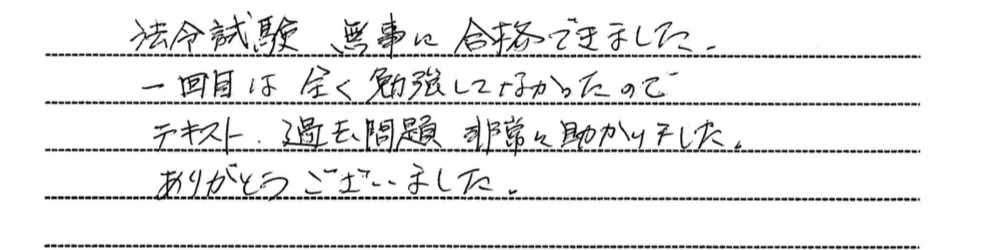 法令試験 無事に合格できました。
一回目は全く勉強してなかったので
テキスト、過去問題 非常に助かりました。
ありがとうございました。